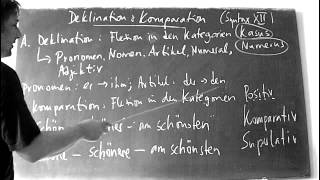 Deklination & Komparation (Syntax XII)
A. Deklination: Flexion in den Kategorien Kasus Numerus
↳ Pronomen, Nomen, Artikel, Numeral,
Adjektiv
Pronomen: er → ihm; Artikel: des → den
Komparation: Flexion in den Kategorien
Positiv
Komparativ
Supulativ
– am schönsten
– schönere – am schönsten